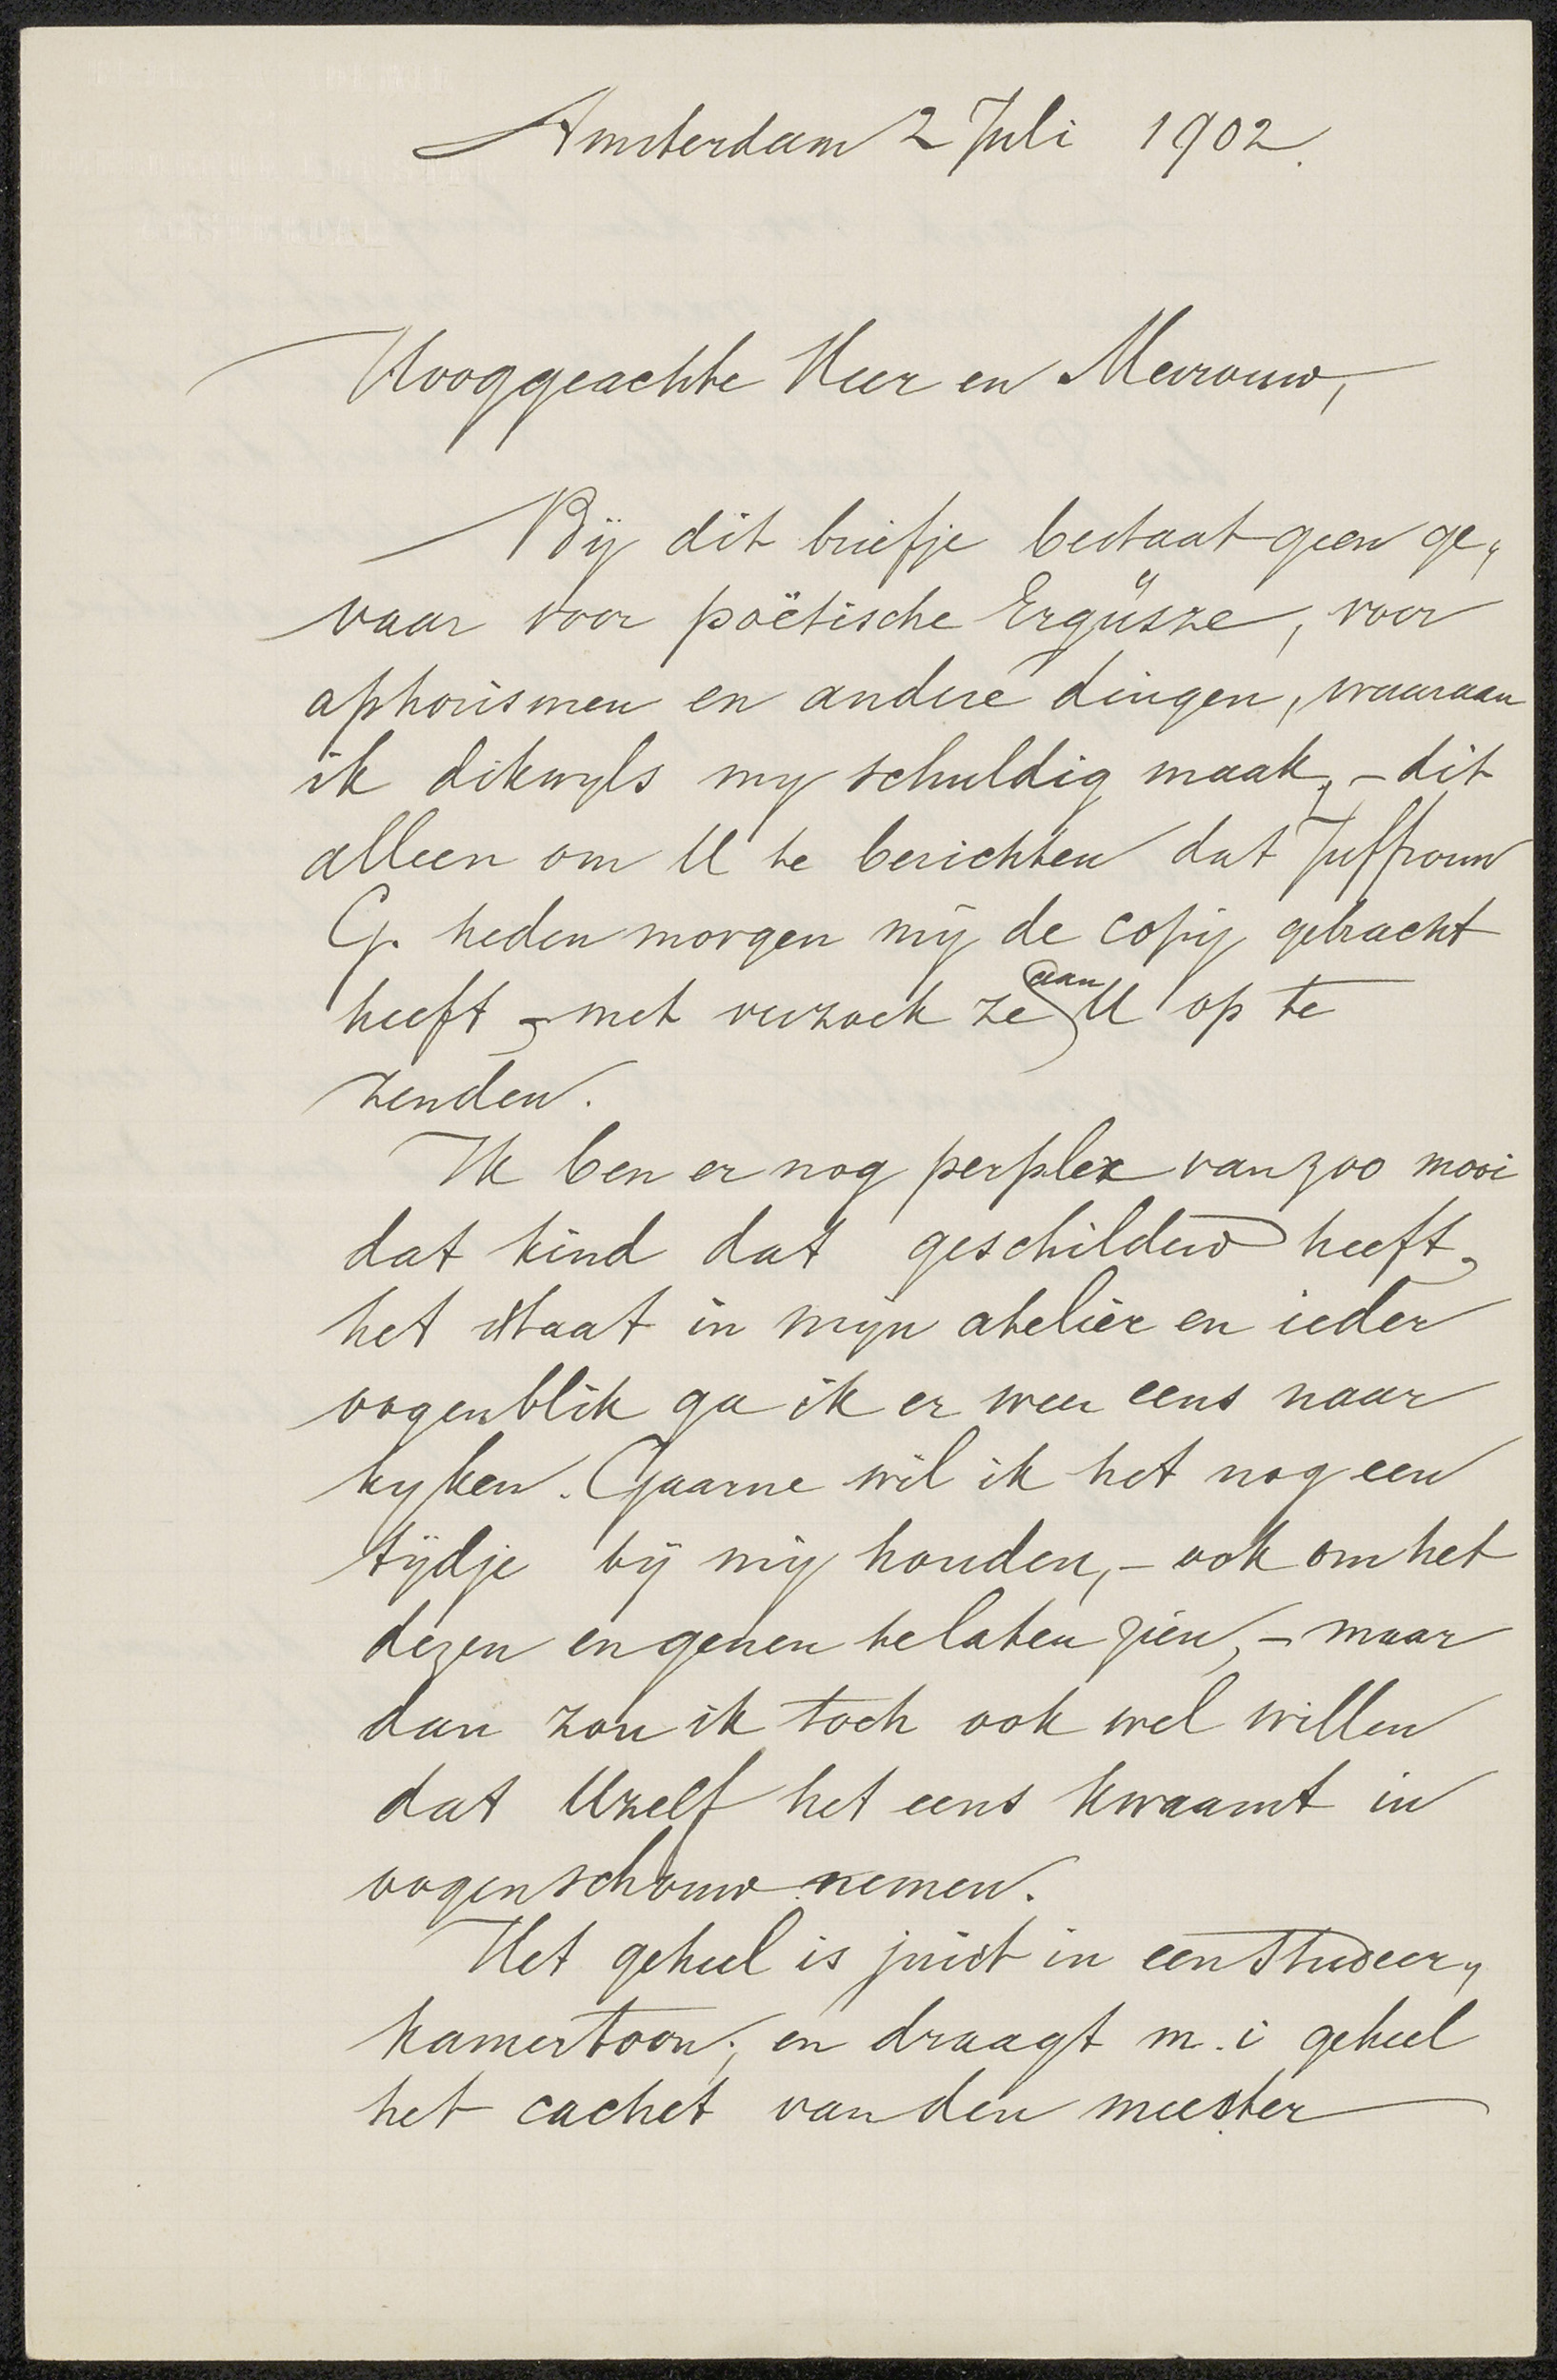 Amsterdam 2 Juli 1902.
Hooggeachte Heer en Mevrouw,
Bij dit briefje bestaat geen ge„
vaar voor poëtische Ergüsze, voor
aphorismen en andere dingen, waaraan
ik dikwyls my schuldig maak, – dit
alleen om U te berichten dat Juffrouw
G. heden morgen mij de copij gebracht
heeft, – met verzoek ze aan U op te
zenden.
Ik ben er nog perplex van zoo mooi
dat kind dat geschilderd heeft,
het staat in mijn atelier en ieder
oogenblik ga ik er weer eens naar
kyken. Gaarne wil ik het nog een
tijdje bij mij houden, – ook om het
dezen en genen te laten zien, – maar
dan zou ik toch ook wel willen
dat Uzelf het eens kwaamt in
oogenschouw nemen.
Het geheel is juist in een studeer„
kamertoon; en draagt m.i geheel
het cachet van den meester